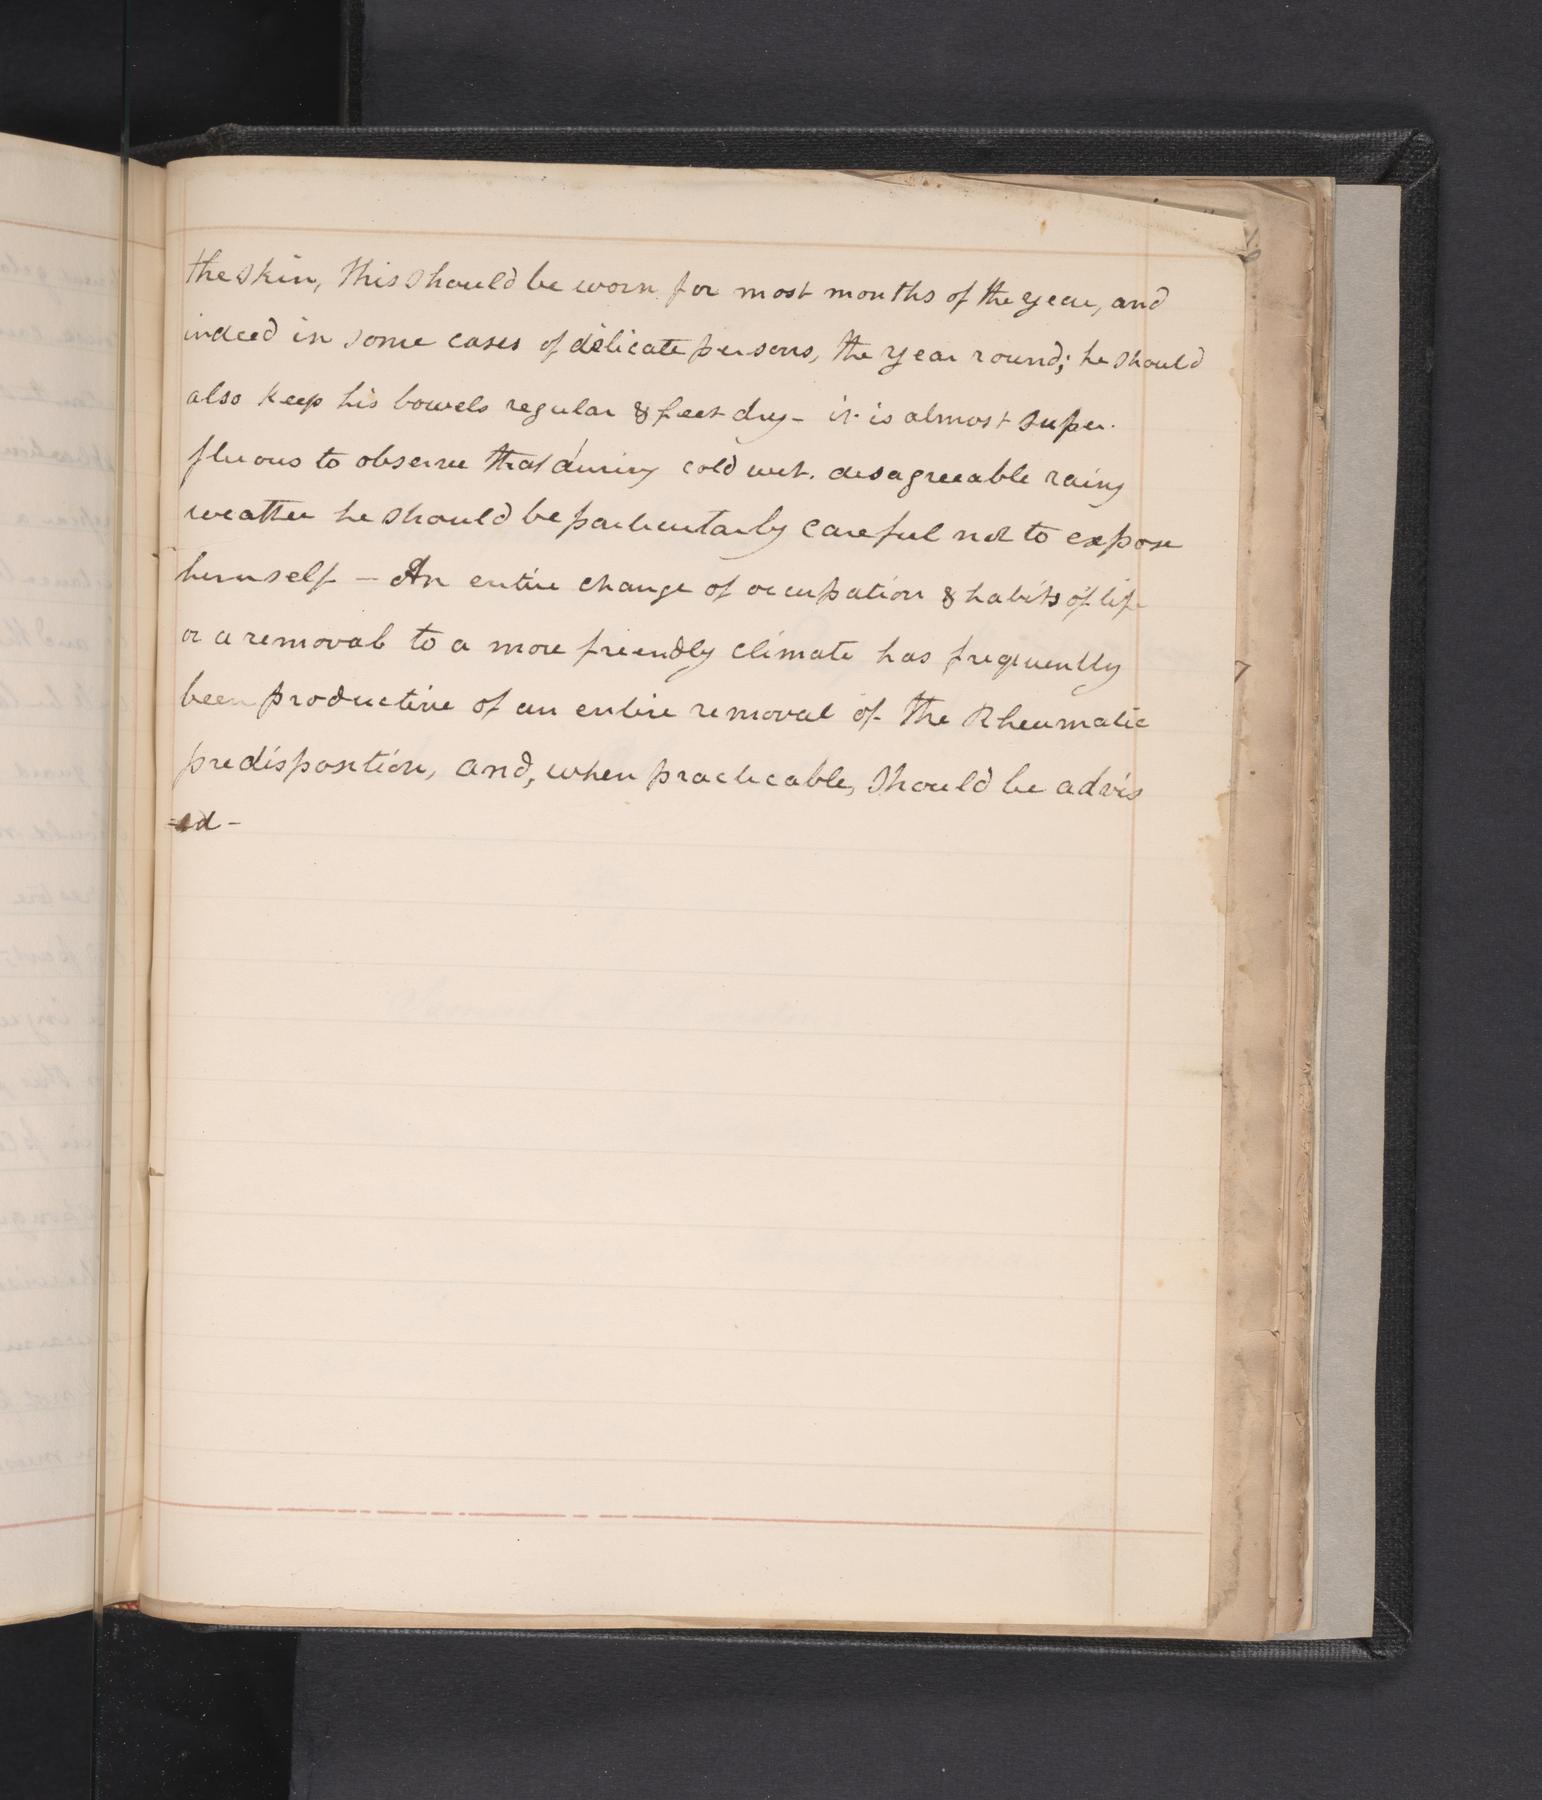 the skin, this should be worn for most months of the year, and
indeed in some cases of delicate persons, the year round; he should
also keep his bowels regular & feet dry - it is almost super-
fluous to observe that during cold wet. disagreeable rainy
weather he should be particularly careful not to expose
himself - An entire change of occupation & habits of life
or a removal to a more friendly climate has frequently
been productive of an entire removal of the Rheumatic
predisposition, and, when practicable, should be advis
=ed -